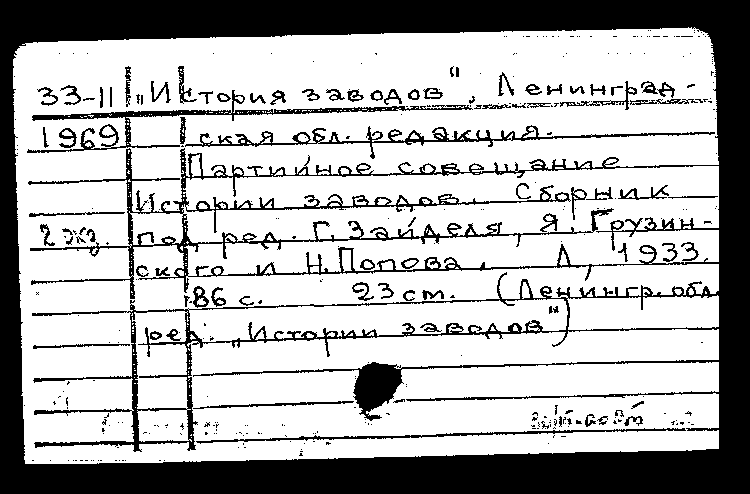 33-11 „История заводов", Ленинград-
1969 ская обл. редакция.
Партийное совещание
Истории заводов. Сборник
2 экз. под ред. Г. Зайделя, Я. Грузин-
ского и Н. Попова. Л, 1933.
86 с. 23 см. (Ленингр. обл.
ред. „Истории заводов")